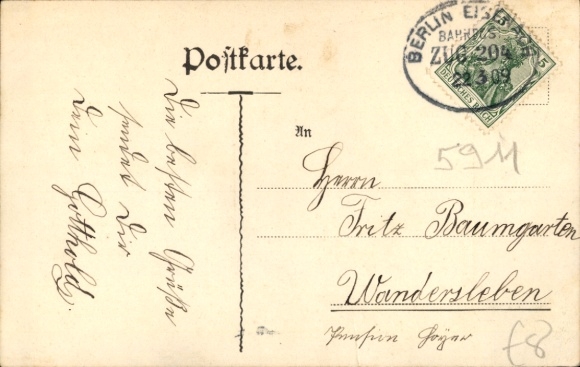 Postkarte.
BERLIN EISENACH
BAHNPOST
ZUG 204
22.3.09
5
DEUTSCHES REICH
Die besten Grüße
sendet Dir
Dein Gotthold.
An
5911
Herrn
Fritz Baumgarten
Wandersleben
Pension Hoyer
£8